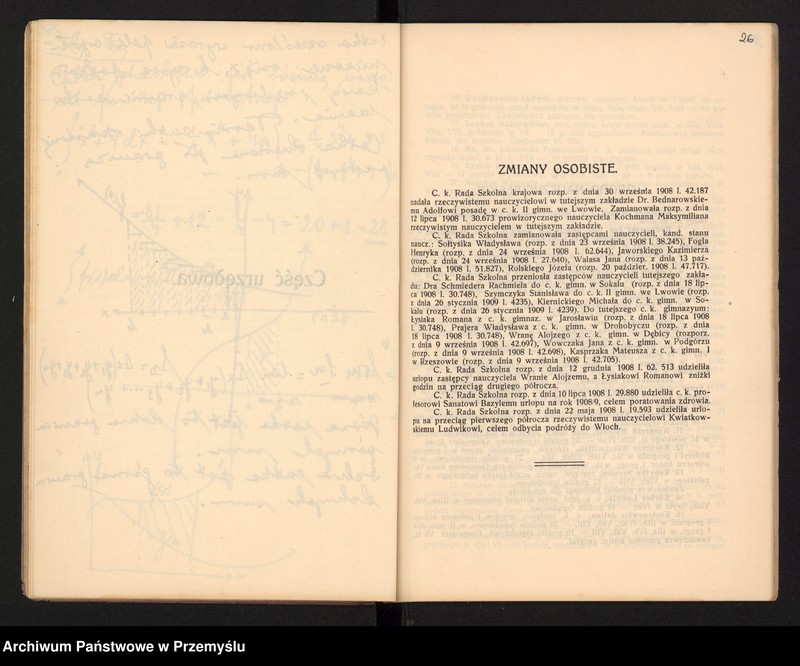 26
ZMIANY OSOBISTE.
C. k. Rada Szkolna krajowa rozp. z dnia 30 września 1908 l. 42.187
nadała rzeczywistemu nauczycielowi w tutejszym zakładzie Dr. Bednarowskie-
mu Adolfowi posadę w c. k. II gimn. we Lwowie. Zamianowała rozp. z dnia
12 lipca 1908 l. 30.673 prowizorycznego nauczyciela Kochmana Maksymiliana
rzeczywistym nauczycielem w tutejszym zakładzie.
C. k. Rada Szkolna zamianowała zastępcami nauczycieli, kand. stanu
naucz.: Sołtysika Władysława (rozp. z dnia 23 września 1908 l. 38.245), Fogla
Henryka (rozp. z dnia 24 września 1908 l. 62.644), Jaworskiego Kazimierza
(rozp. z dnia 24 września 1908 l. 27.640), Walasa Jana (rozp. z dnia 13 paź-
dziernika 1908 l. 51.827), Rolskiego Józefa (rozp. 20 paździer. 1908 l. 47.717).
C. k. Rada Szkolna przeniosła zastępców nauczycieli tutejszego zakła-
du: Dra Schmiedera Rachmiela do c. k. gimn. w Sokalu (rozp. z dnia 18 lip-
ca 1908 l. 30.748), Szymczyka Stanisława do c. k. II gimn. we Lwowie (rozp.
z dnia 26 stycznia 1909 l. 4235), Kiernickiego Michała do c. k. gimn. w So-
kalu (rozp. z dnia 26 stycznia 1909 l. 4239). Do tutejszego c. k. gimnazyum:
Łysiaka Romana z c. k. gimnaz. w Jarosławiu (rozp. z dnia 18 lipca 1908
l. 30.748), Prajera Władysława z c. k. gimn. w Drohobyczu (rozp. z dnia
18 lipca 1908 l. 30.748), Wranę Alojzego z c. k. gimn. w Dębicy (rozporz.
z dnia 9 września 1908 l. 42.697), Wowczaka Jana z c. k. gimn. w Podgórzu
(rozp. z dnia 9 września 1908 l. 42.698), Kasprzaka Mateusza z c. k. gimn. I
w Rzeszowie (rozp. z dnia 9 września 1908 l. 42.705).
C. k. Rada Szkolna rozp. z dnia 12 grudnia 1908 l. 62. 513 udzieliła
urlopu zastępcy nauczyciela Wranie Alojzemu, a Łysiakowi Romanowi zniżki
godzin na przeciąg drugiego półrocza.
C. k. Rada Szkolna rozp. z dnia 10 lipca 1908 l. 29.880 udzieliła c. k. pro-
fesorowi Sanatowi Bazylemu urlopu na rok 1908/9, celem poratowania zdrowia.
C. k. Rada Szkolna rozp. z dnia 22 maja 1908 l. 19.593 udzieliła urlo-
pu na przeciąg pierwszego półrocza rzeczywistemu nauczycielowi Kwiatkow-
skiemu Ludwikowi, celem odbycia podróży do Włoch.
Archiwum Państwowe w Przemyślu